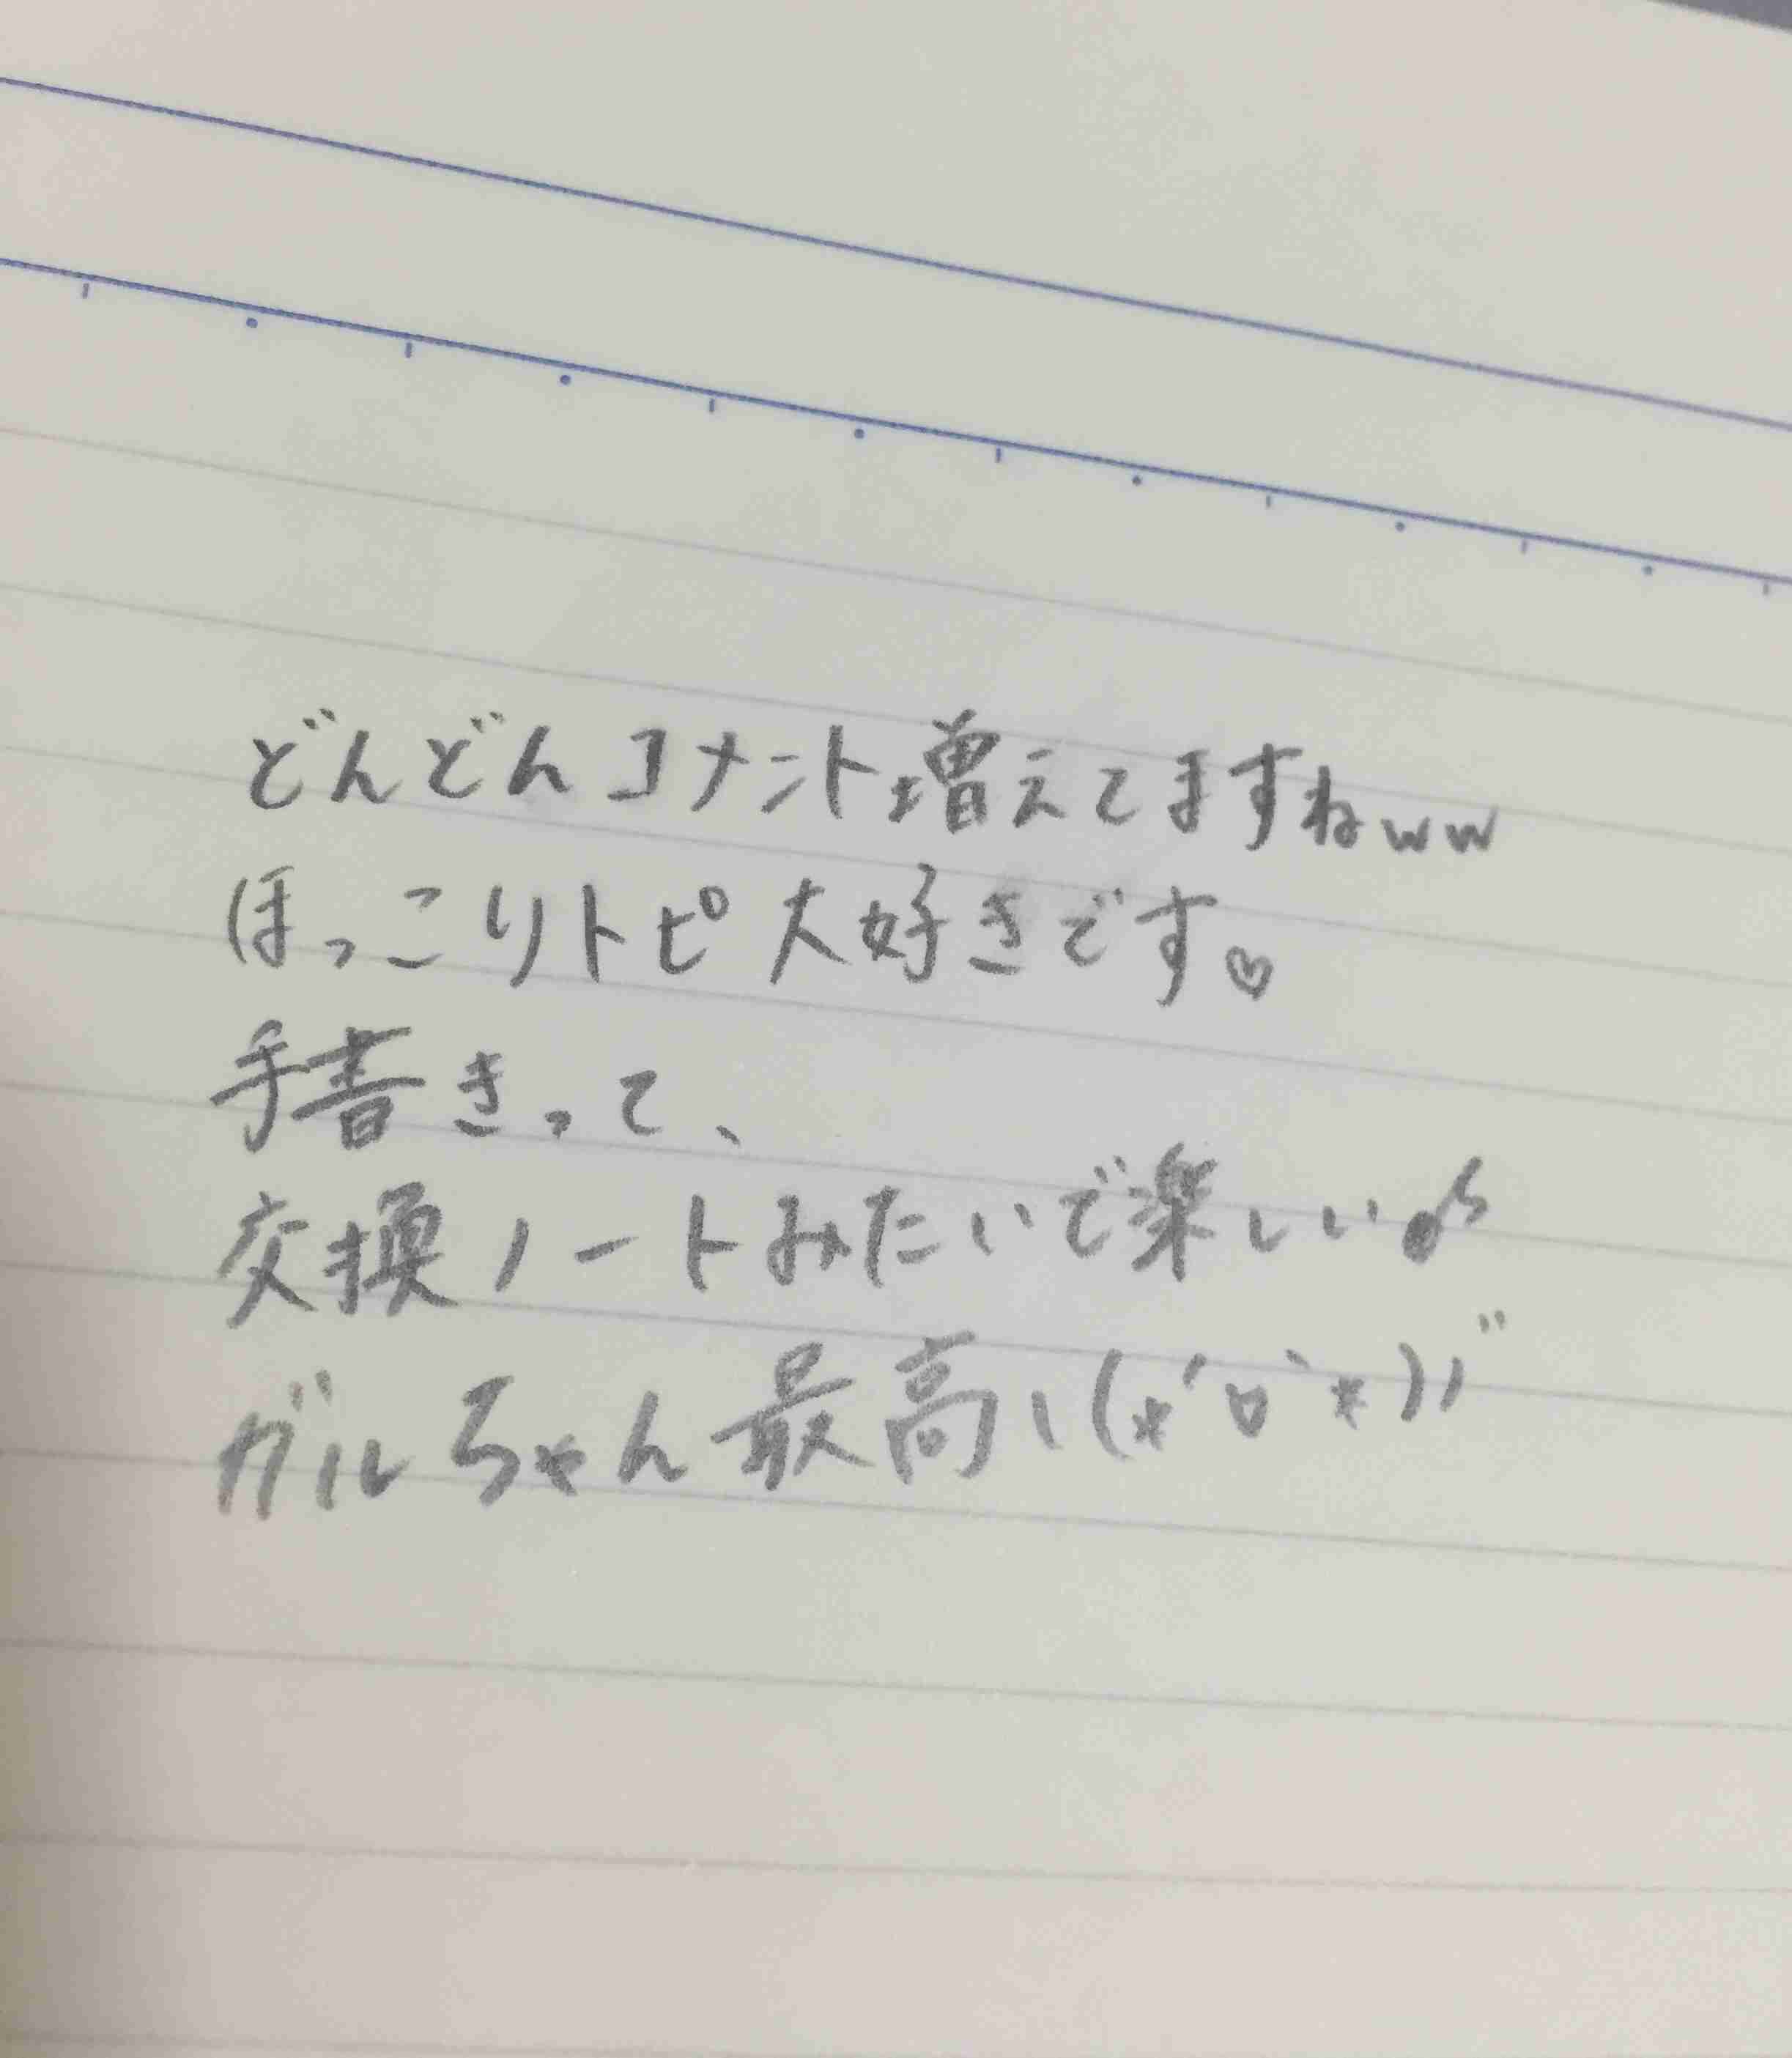 どんどんコメント増えてますねww
ほっこりトピ大好きです♡
手書きって、
交換ノートみたいで楽しい♪
ガルちゃん最高ヽ(*´▽`*)ノ゛